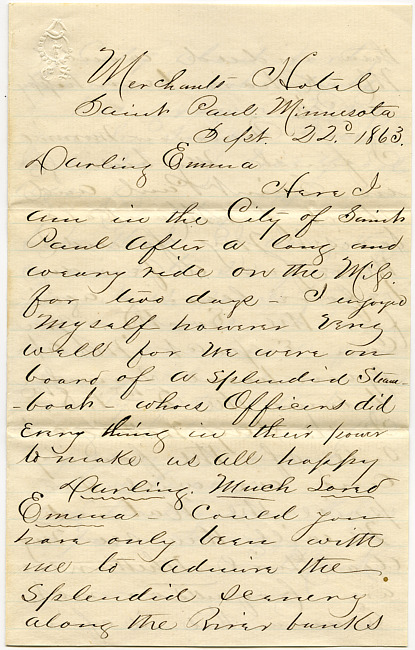 Merchants Hotel
Saint Paul. Minnesota
Sept. 22d 1863.
Darling Emma
Here I
am in the City of Saint
Paul after a long and
weary ride on the
for two days - I enjoyed
myself however very
well for we were on
board of a splendid Steam
-boat - whoes Officers did
every thing in their power
to make us all happy
Darling. Much Loved
Emma could you
have only been with
me to admire the
splendid scenery
along the River banks